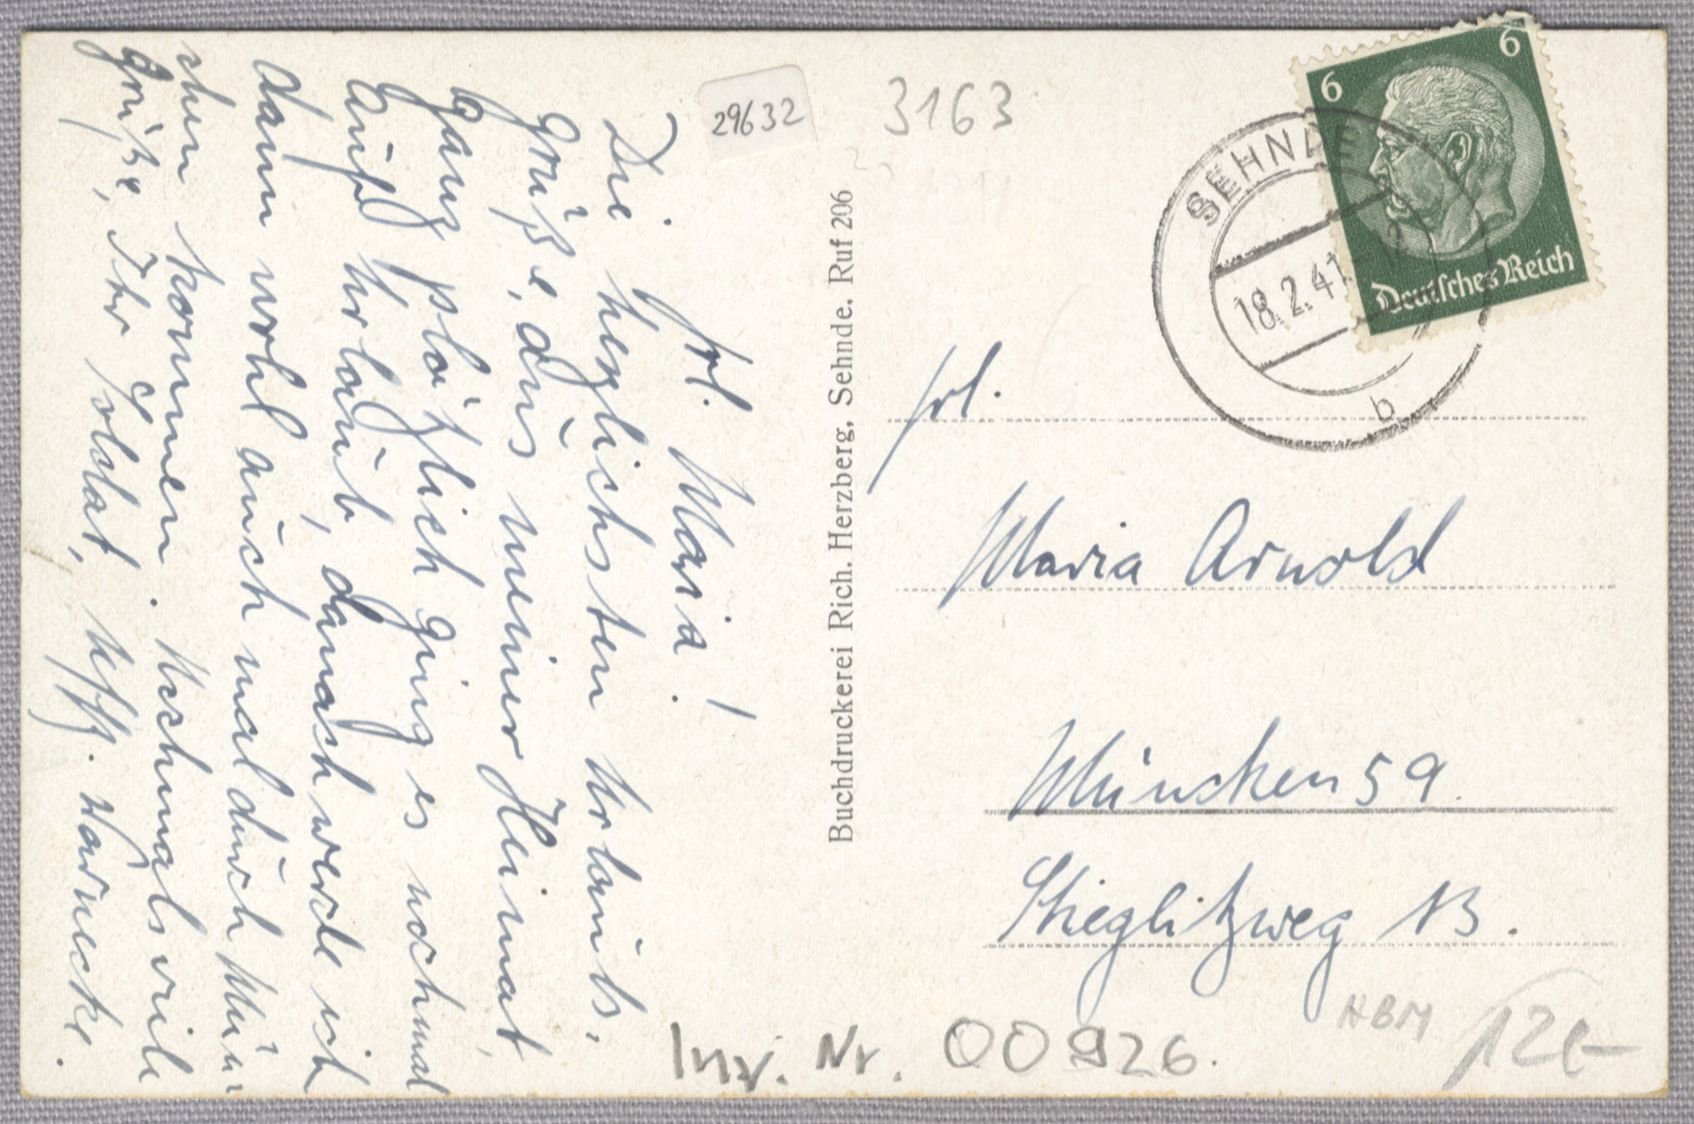 Frl. Maria!
Die herzlichsten Urlaubs-
grüße, aus meiner Heimat,
ganz plötzlich ging es nochmal
auf Urlaub, danach werde ich
dann wohl auch mal durch Mün-
chen kommen. Nochmals viele
Grüße, Ihr Soldat, Uffz. Warnecke.
29632
3163
Buchdruckerei Rich. Herzberg, Sehnde. Ruf 206
6
6
Deutsches Reich
SEHNDE
18.2.41
b
Frl.
Maria Arnold
München 59.
Stieglitzweg 13.
Inv. Nr. 00926.
HBM
12€-